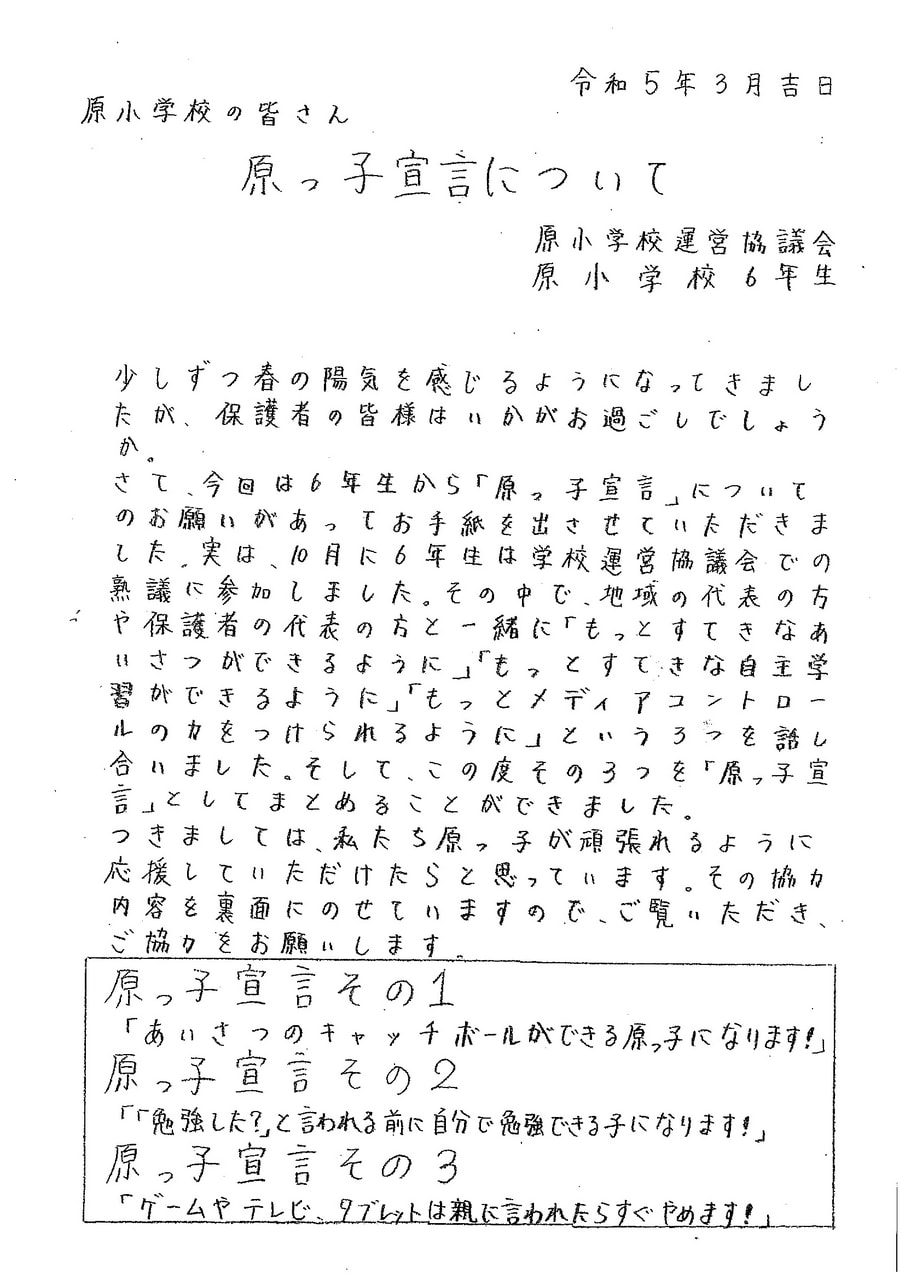 令和5年3月吉日
原小学校の皆さん
原っ子宣言について
原小学校運営協議会
原小学校6年生
少しずつ春の陽気を感じるようになってきまし
たが、保護者の皆様はいかがお過ごしでしょう
か。
さて、今回は6年生から「原っ子宣言」について
のお願いがあってお手紙を出させていただきま
した。実は、10月に6年生は学校運営協議会での
熟議に参加しました。その中で、地域の代表の方
や保護者の代表の方と一緒に「もっとすてきなあ
いさつができるように」「もっとすてきな自主学
習ができるように」「もっとメディアコントロー
ルの力をつけられるように」という3つを話し
合いました。そして、この度その3つを「原っ子宣
言」としてまとめることができました。
つきましては、私たち原っ子が頑張れるように
応援していただけたらと思っています。その協力
内容を裏面にのせていますので、ご覧いただき、
ご協力をお願いします。
原っ子宣言その1
「あいさつのキャッチボールができる原っ子になります!」
原っ子宣言その2
「「勉強した?」と言われる前に自分で勉強できる子になります!」
原っ子宣言その3
「ゲームやテレビ、タブレットは親に言われたらすぐやめます!」